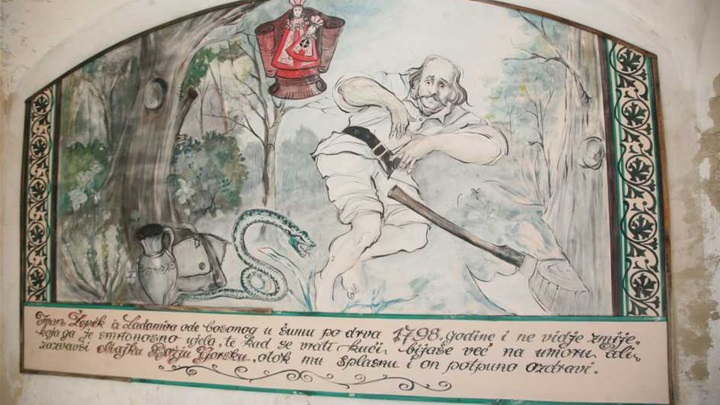 Ivan Lopěk iz Ladomira ode bosonog u šumu po drva 1798. godine i ne vidje zmije,
koja ga je smrtonosno ujela, te kad se vrati kući, bijaše već na umoru, ali
zazvavši Majku Božju Gorsku, otok mu splasnu i on potpuno ozdravi.